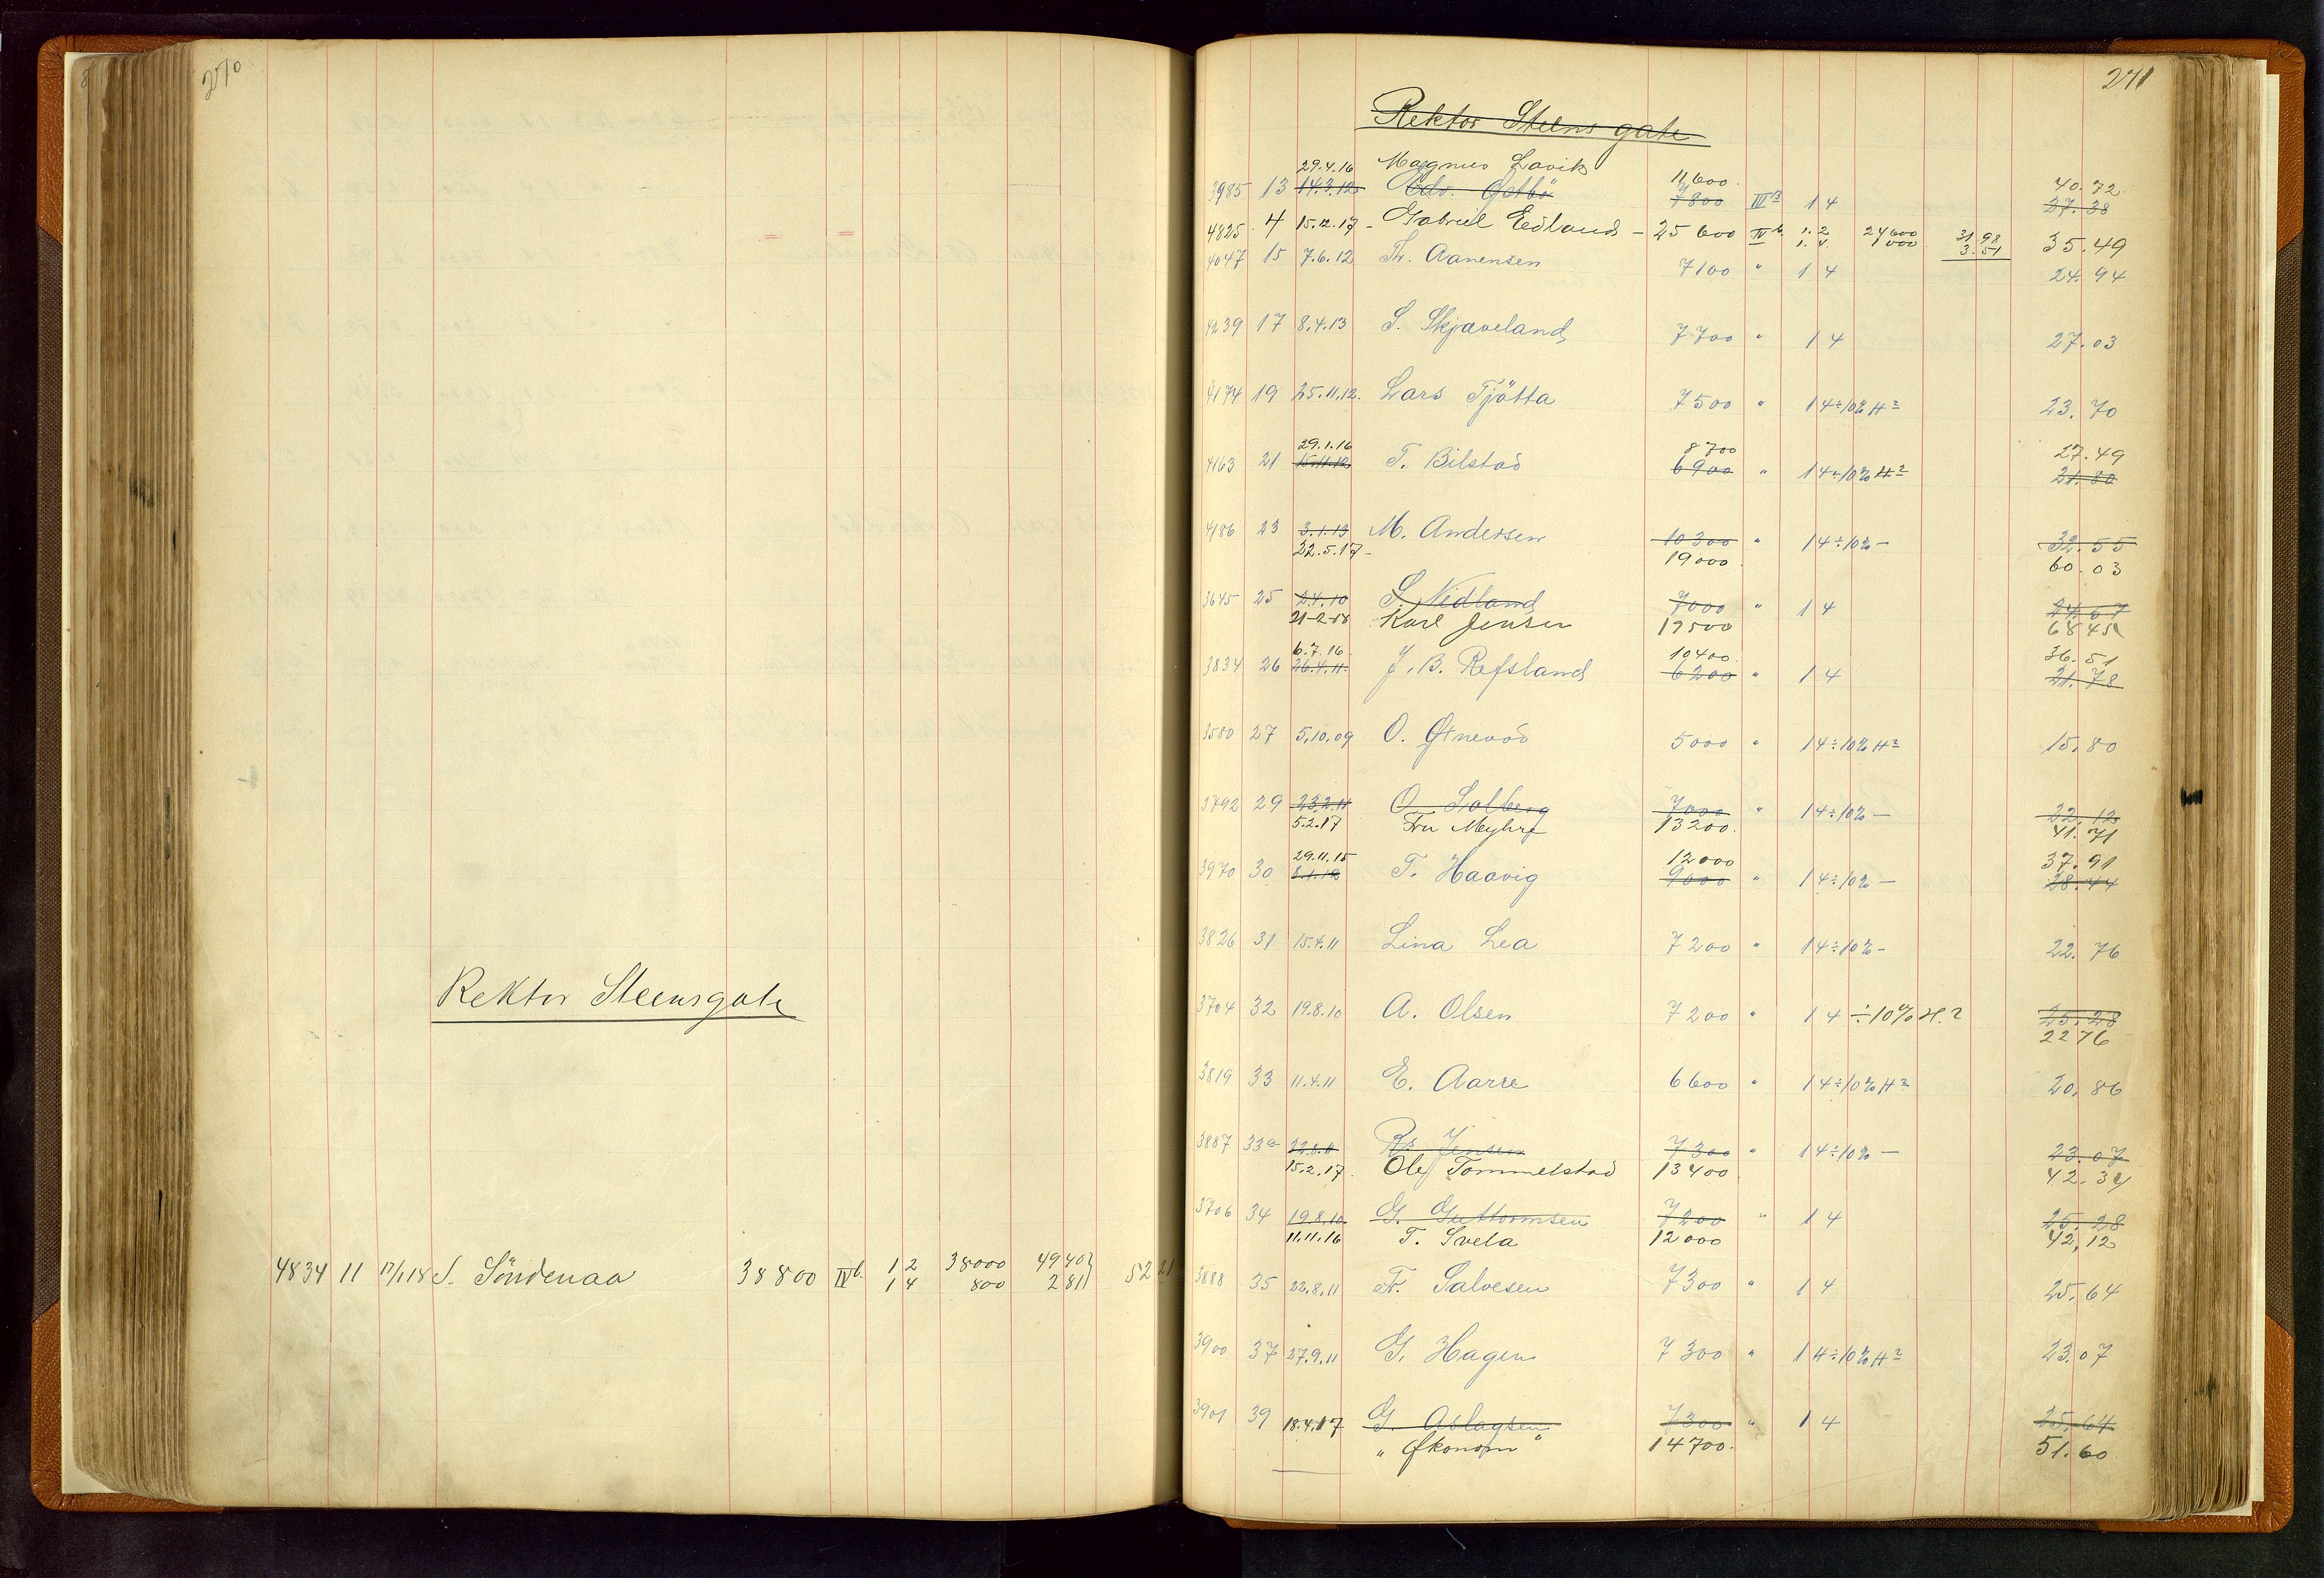 270
Rektor Steensgate
4834 11 17/1 18 S. Söndenaa 38800 IV b. 1 2 38000 49 40 } 52 21
1 4 800 2 81
271
Rektor Steens gate
29.4.16 Magnus Lavik 11600. 40.72
3985 13 14.3.12 Edv. 7800 III B 1 4 27.38
4825 4 15.12.17 - Gabriel Edland - 25600 IV b. 1. 2 24600 31.98 35.49
1. 4 1000 3.51
4047 15 7.6.12 Th. Aanensen 7100 " 1 4 24.94
4239 17 8.4.13 S. Skjæveland 7700 " 1 4 27.03
4174 19 25.11.12. Lars Tjötta 7500 " 1 4 ÷ 10% H? 23.70
29.1.16 8700 27.49
4163 21 15.11.12 T. Bilstad 6900 " 1 4 ÷ 10% H? 21.80
4186 23 3.1.13 M. Andersen 10300 " 1 4 ÷ 10% - 32.55
22.5.17 - 19000. 60.03
3645 25 2.4.10 S. Nedland 7000 " 1 4 24.57
21-2-18 Karl Jensen 19500 6845
6.7.16. 10400. 36.51
3834 26 26.4.11. J. B. Refsland 6200 " 1 4 21.78
3580 27 5.10.09 O. Østnevad 5000 " 1 4 ÷ 10% H? 15.80
3792 29 23.2.11 O. Solberg 7000 " 1 4 ÷ 10% - 22.12
5.2.17 Fru Meyhre 13200. 41.71
29.11.15 12000 37.91
3970 30 8.1.12 T. Haavig 9000 " 1 4 ÷ 10% - 28.44
3826 31 15.4.11 Lina Lea 7200 " 1 4 ÷ 10% - 22.76
3704 32 19.8.10 A. Olsen 7200 " 1 4 ÷ 10% H.? 25.28
2276
3819 33 11.4.11 E. Aarre 6600 " 1 4 ÷ 10% H? 20.86
3887 33a 22.8.11 Rs. Jensen 7300 " 1 4 ÷ 10% - 23.07
15.2.17. Ole Tommelstad 13400 42.34
3706 34 19.8.10 G. Guttormsen 7200 " 1 4 25.28
11.11.16 T. Svela 12000 42.12
3888 35 22.8.11 Fr. Salvesen 7300 " 1 4 25.64
3900 37 27.9.11 G. Hagen 7300 " 1 4 ÷ 10% H? 23.07
3901 39 18.4.17 G. Aslagsen 7300 " 1 4 25.64
" Økonom " 14700. 51.60